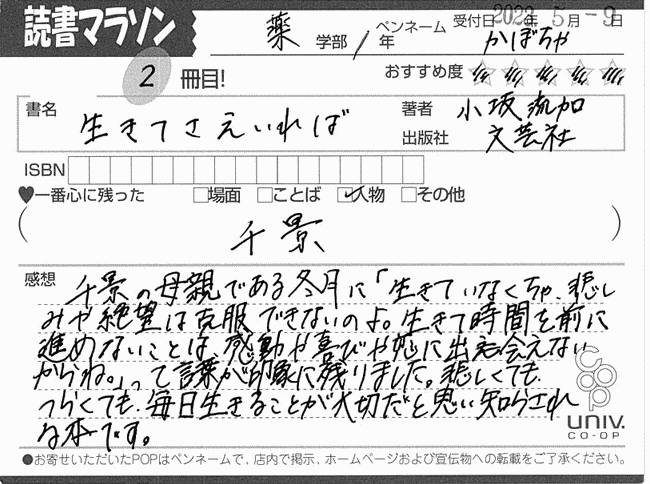 読書マラソン
薬 学部 / 年
ペンネーム かぼちゃ
受付日 2023年 5月 -9日
2 冊目!
おすすめ度
書名 生きてさえいれば
著者 小坂流加
出版社 文芸社
ISBN
♥一番心に残った □場面 □ことば ☑人物 □その他
(千景)
感想
千景の母親である冬月に「生きていなくちゃ、悲し
みや絶望は克服できないのよ。生きて時間を前に
進めないことは、感動や喜びや恋に出会えない
からね。」って言葉が印象に残りました。悲しくても、
つらくても、毎日生きることが大切だと思い知らされ
る本です。
coop
UNIV.
CO-OP
●お寄せいただいたPOPはペンネームで、店内で掲示、ホームページおよび宣伝物への転載をご了承ください。